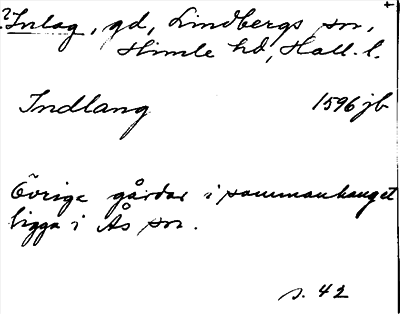 ?Inlag, gd, Lindbergs sn,
Himle hd, Hall. l.
Indlang 1596 jb
Övriga gårdar i sammanhanget
ligga i Ås sn.
s. 42